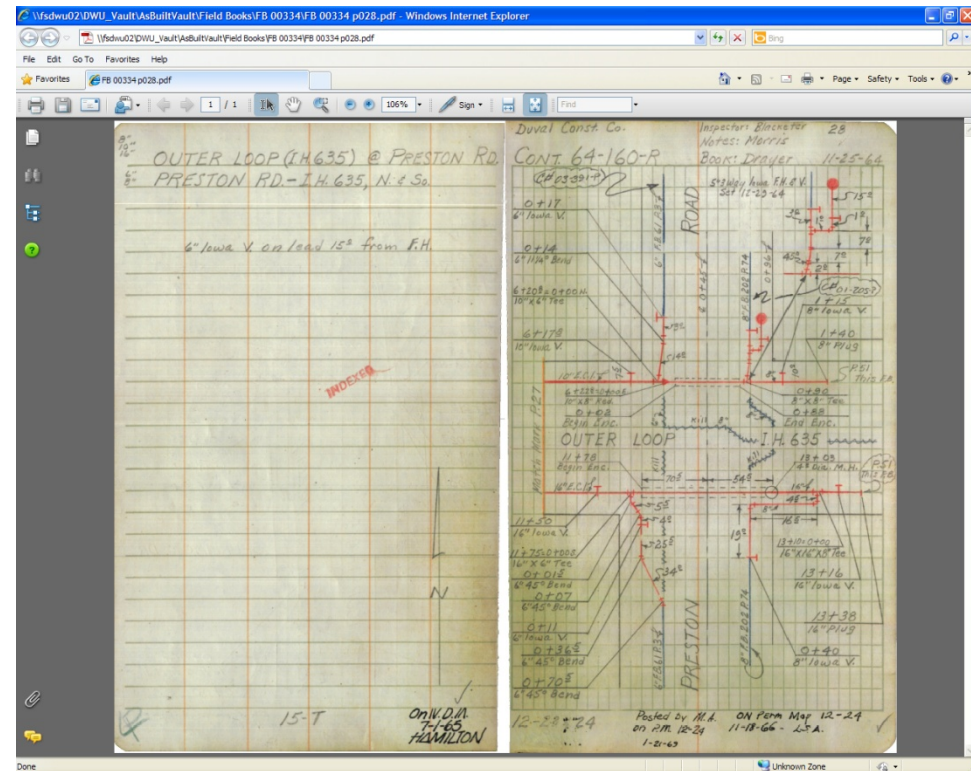 \\fsdwu02\DWU_Vault\AsBuiltVault\Field Books\FB 00334\FB 00334 p028.pdf - Windows Internet Explorer
\\fsdwu02\DWU_Vault\AsBuiltVault\Field Books\FB 00334\FB 00334 p028.pdf
Bing
File Edit Go To Favorites Help
Favorites
FB 00334 p028.pdf
Page Safety Tools
1 / 1
106%
Sign
Find
8"
10"
16"
OUTER LOOP (I.H. 635) @ PRESTON RD.
6"
8"
PRESTON RD. - I.H. 635, N. & So.
6" Iowa V. on lead 15⁵ from F.H.
INDEXED
N
15-T
On W.D.M.
7-1-65
HAMILTON
Duval Const. Co.
Inspector: Blocketer
28
Notes: Morris
CONT. 64-160-R
Book: Drayer
11-25-64
5" 3 Way Iowa F.H. & V.
Set 11-23-64
0+17
6" Iowa V.
0+14
6" 11¼° Bend
10" X 6" Tee
6+17⁵
10" Iowa V.
ROAD
1+15
8" Iowa V.
1+40
8" Plug
P.51
This F.B.
0+90
8" X 8" Tee
0+02
Begin Enc.
0+88
End Enc.
MAKE MARK P.27
OUTER LOOP
I.H. 635
Kill 8"
11+78
Begin Enc.
13+03
4' Dia. M.H.
P.51
This F.B.
70⁵
54⁵
11+50
16" Iowa V.
11+75=0+00
16" X 6" Tee
0+01⁵
6" 45° Bend
0+07
6" 45° Bend
0+11
6" Iowa V.
0+36⁵
6" 45° Bend
0+70⁵
6" 45° Bend
13+10=0+00
16" X 16" X 8" Tee
13+16
16" Iowa V.
13+38
16" Plug
0+40
8" Iowa V.
PRESTON
8" F.B. 202 P.74
12-23 & 24
Posted by M.A.
on P.M. 12-24
1-21-69
ON Perm Map 12-24
11-18-66 - L.S.A.
Done
Unknown Zone